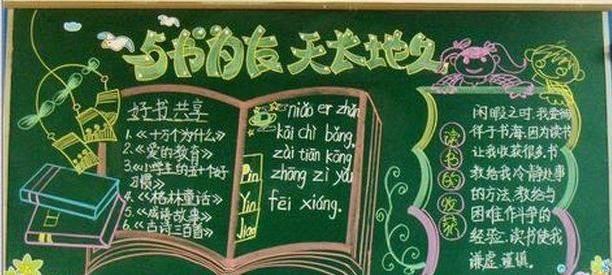 与书为友 天长地久
好书共享
1.《十万个为什么》
2.《爱的教育》
3.《小学生的五十个好
习惯》
4.《格林童话》
5.《成语故事》
6.《古诗三百首》
niǎo er zhǎn
kāi chì bǎng,
zài tiān kōng
zhōng zì yóu
fēi xiáng.
Pin
Yin
Jiao
读书的收获
闲暇之时,我爱徜
徉于书海,因为读书
让我收获很多.书
教给我冷静处事
的方法,教给与
困难作斗争的
经验.读书使我
谦虚、谨慎.